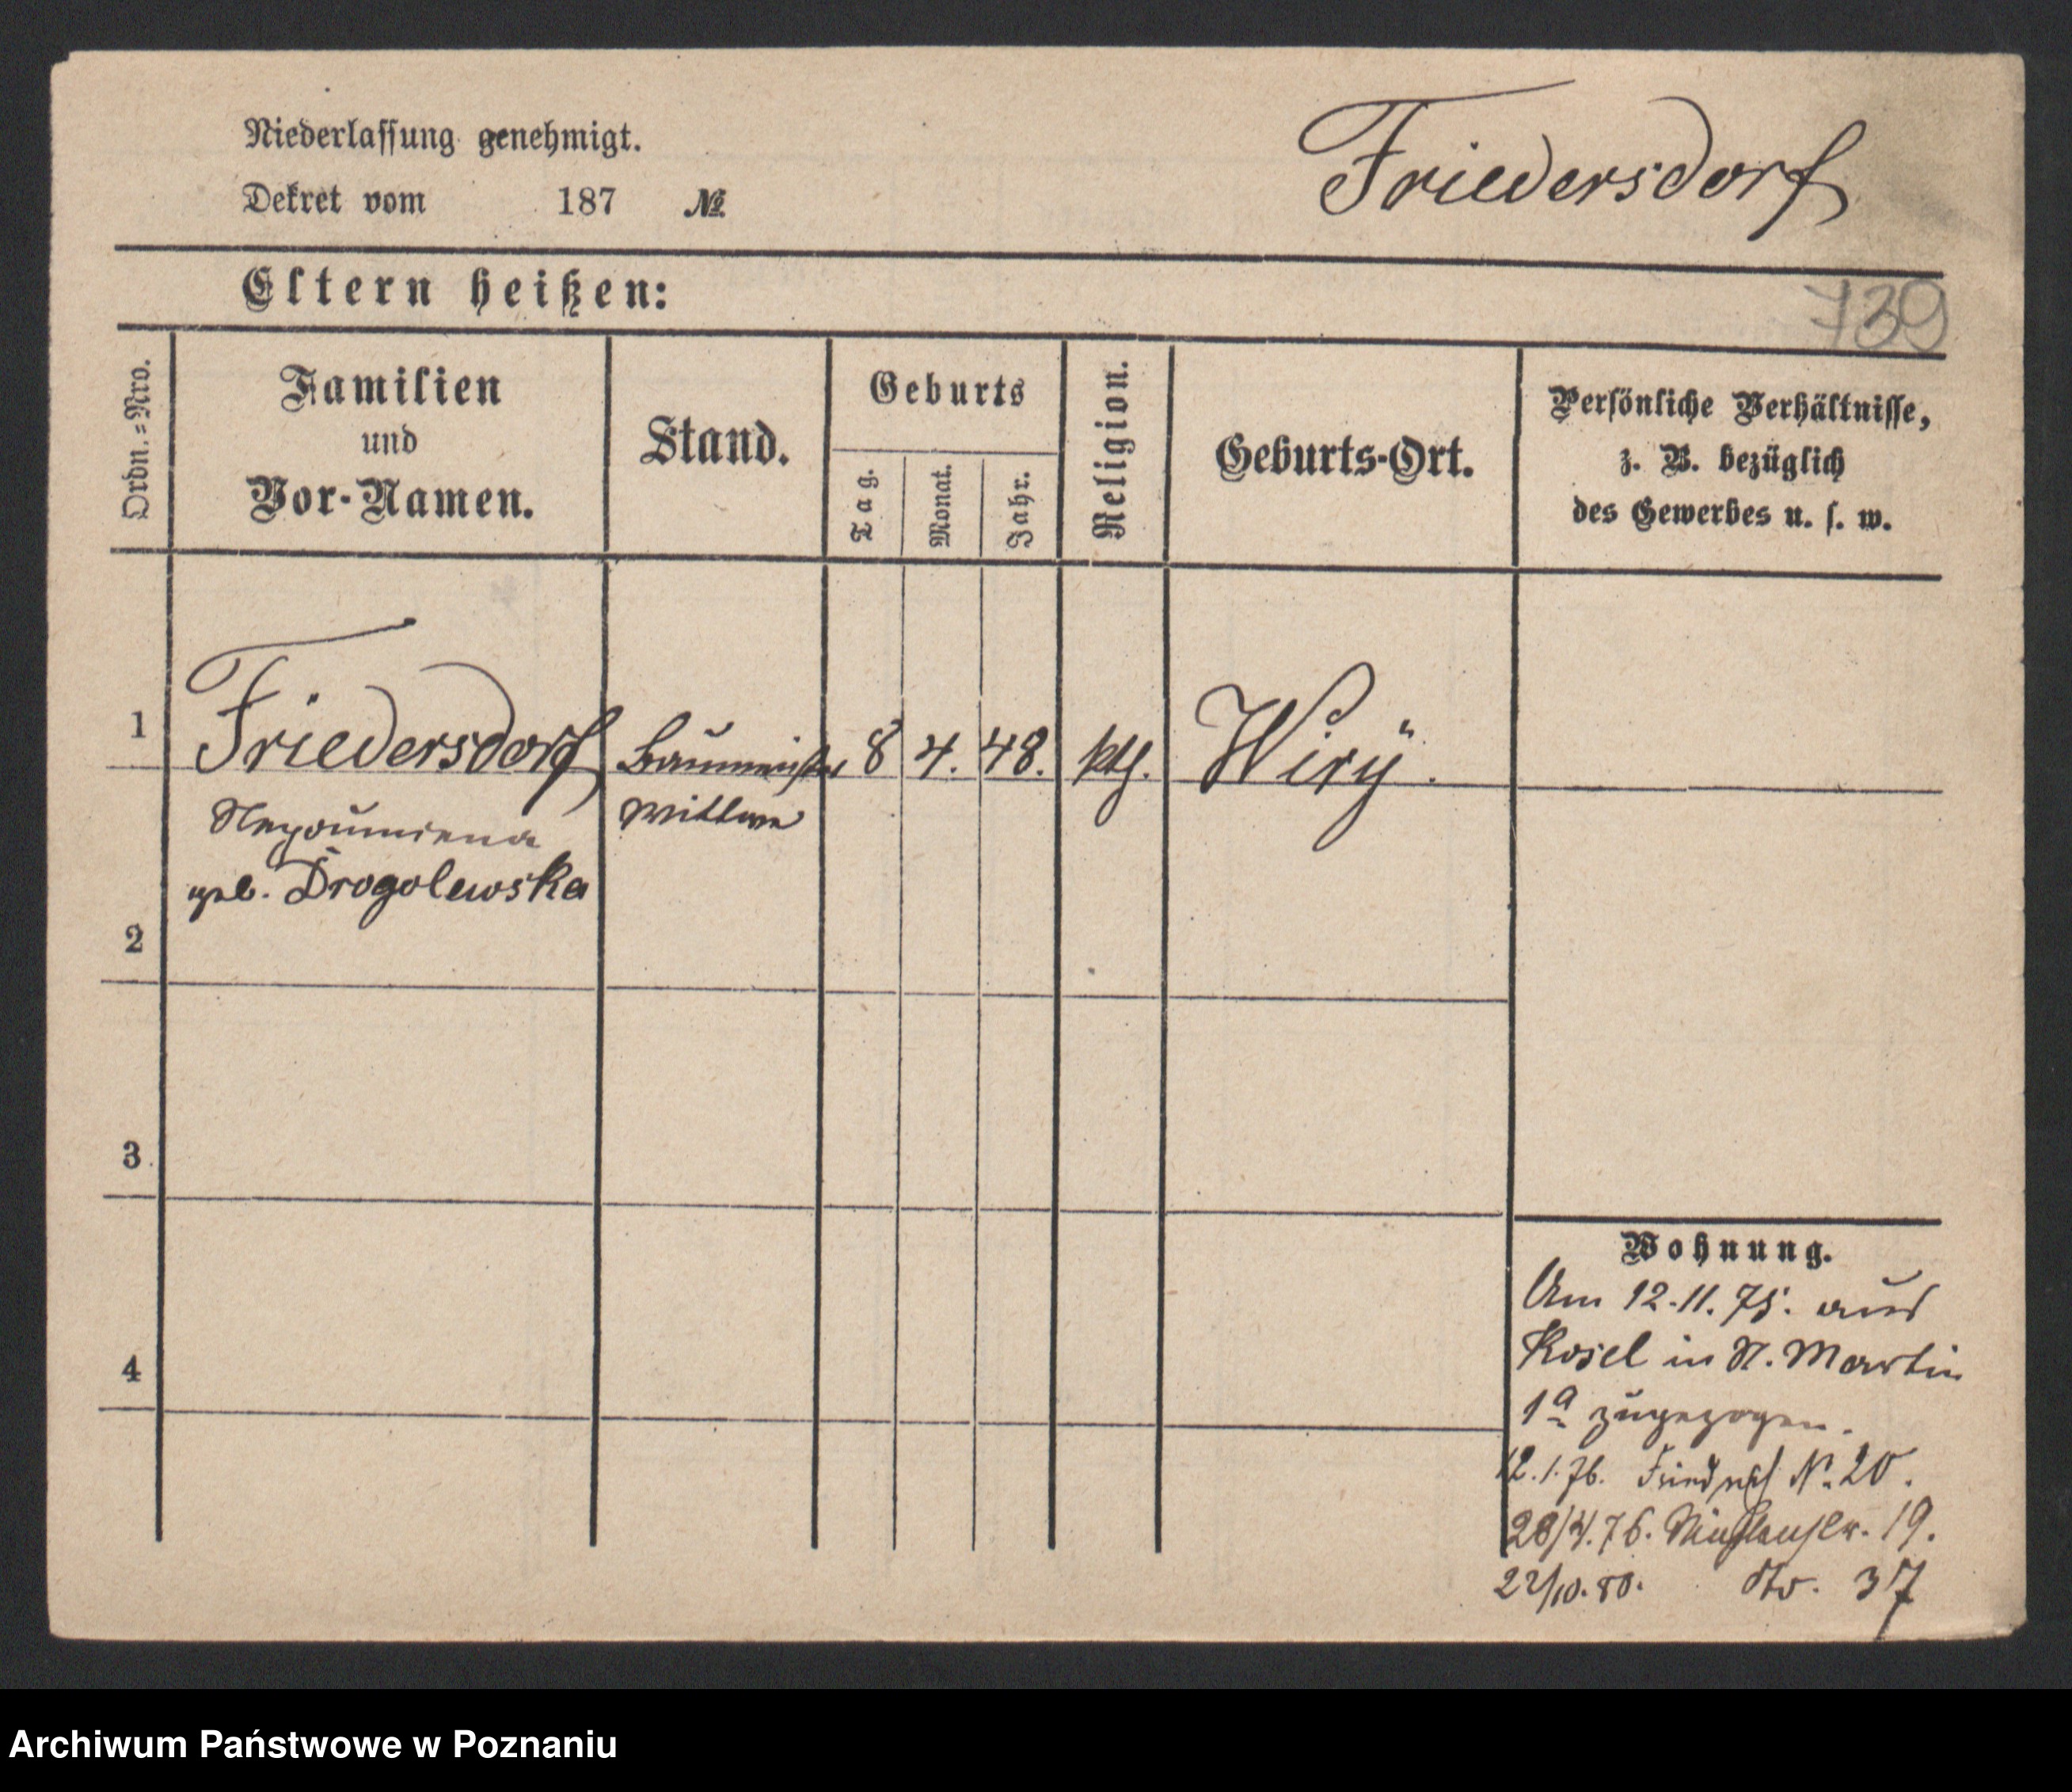 Niederlassung genehmigt.
Dekret vom 187 №
Friedersdorf
Eltern heißen:
739
Ordn.=Nro.
Familien
und
Vor-Namen.
Stand.
Geburts
Tag.
Monat.
Jahr.
Religion.
Geburts-Ort.
Persönliche Verhältnisse,
z. B. bezüglich
des Gewerbes u. s. w.
1 Friedersdorf Baumeister 8 4. 48. kth. Wiry.
Nepoumiena Wittwe
geb. Drogolewska
2
3
4
Wohnung.
Am 12.11.75. aus
Kosel in St. Martin
1a zugezogen.
12.1.76. No. 20.
28/4.76. 19.
22/10.80. dto. 37
Archiwum Państwowe w Poznaniu